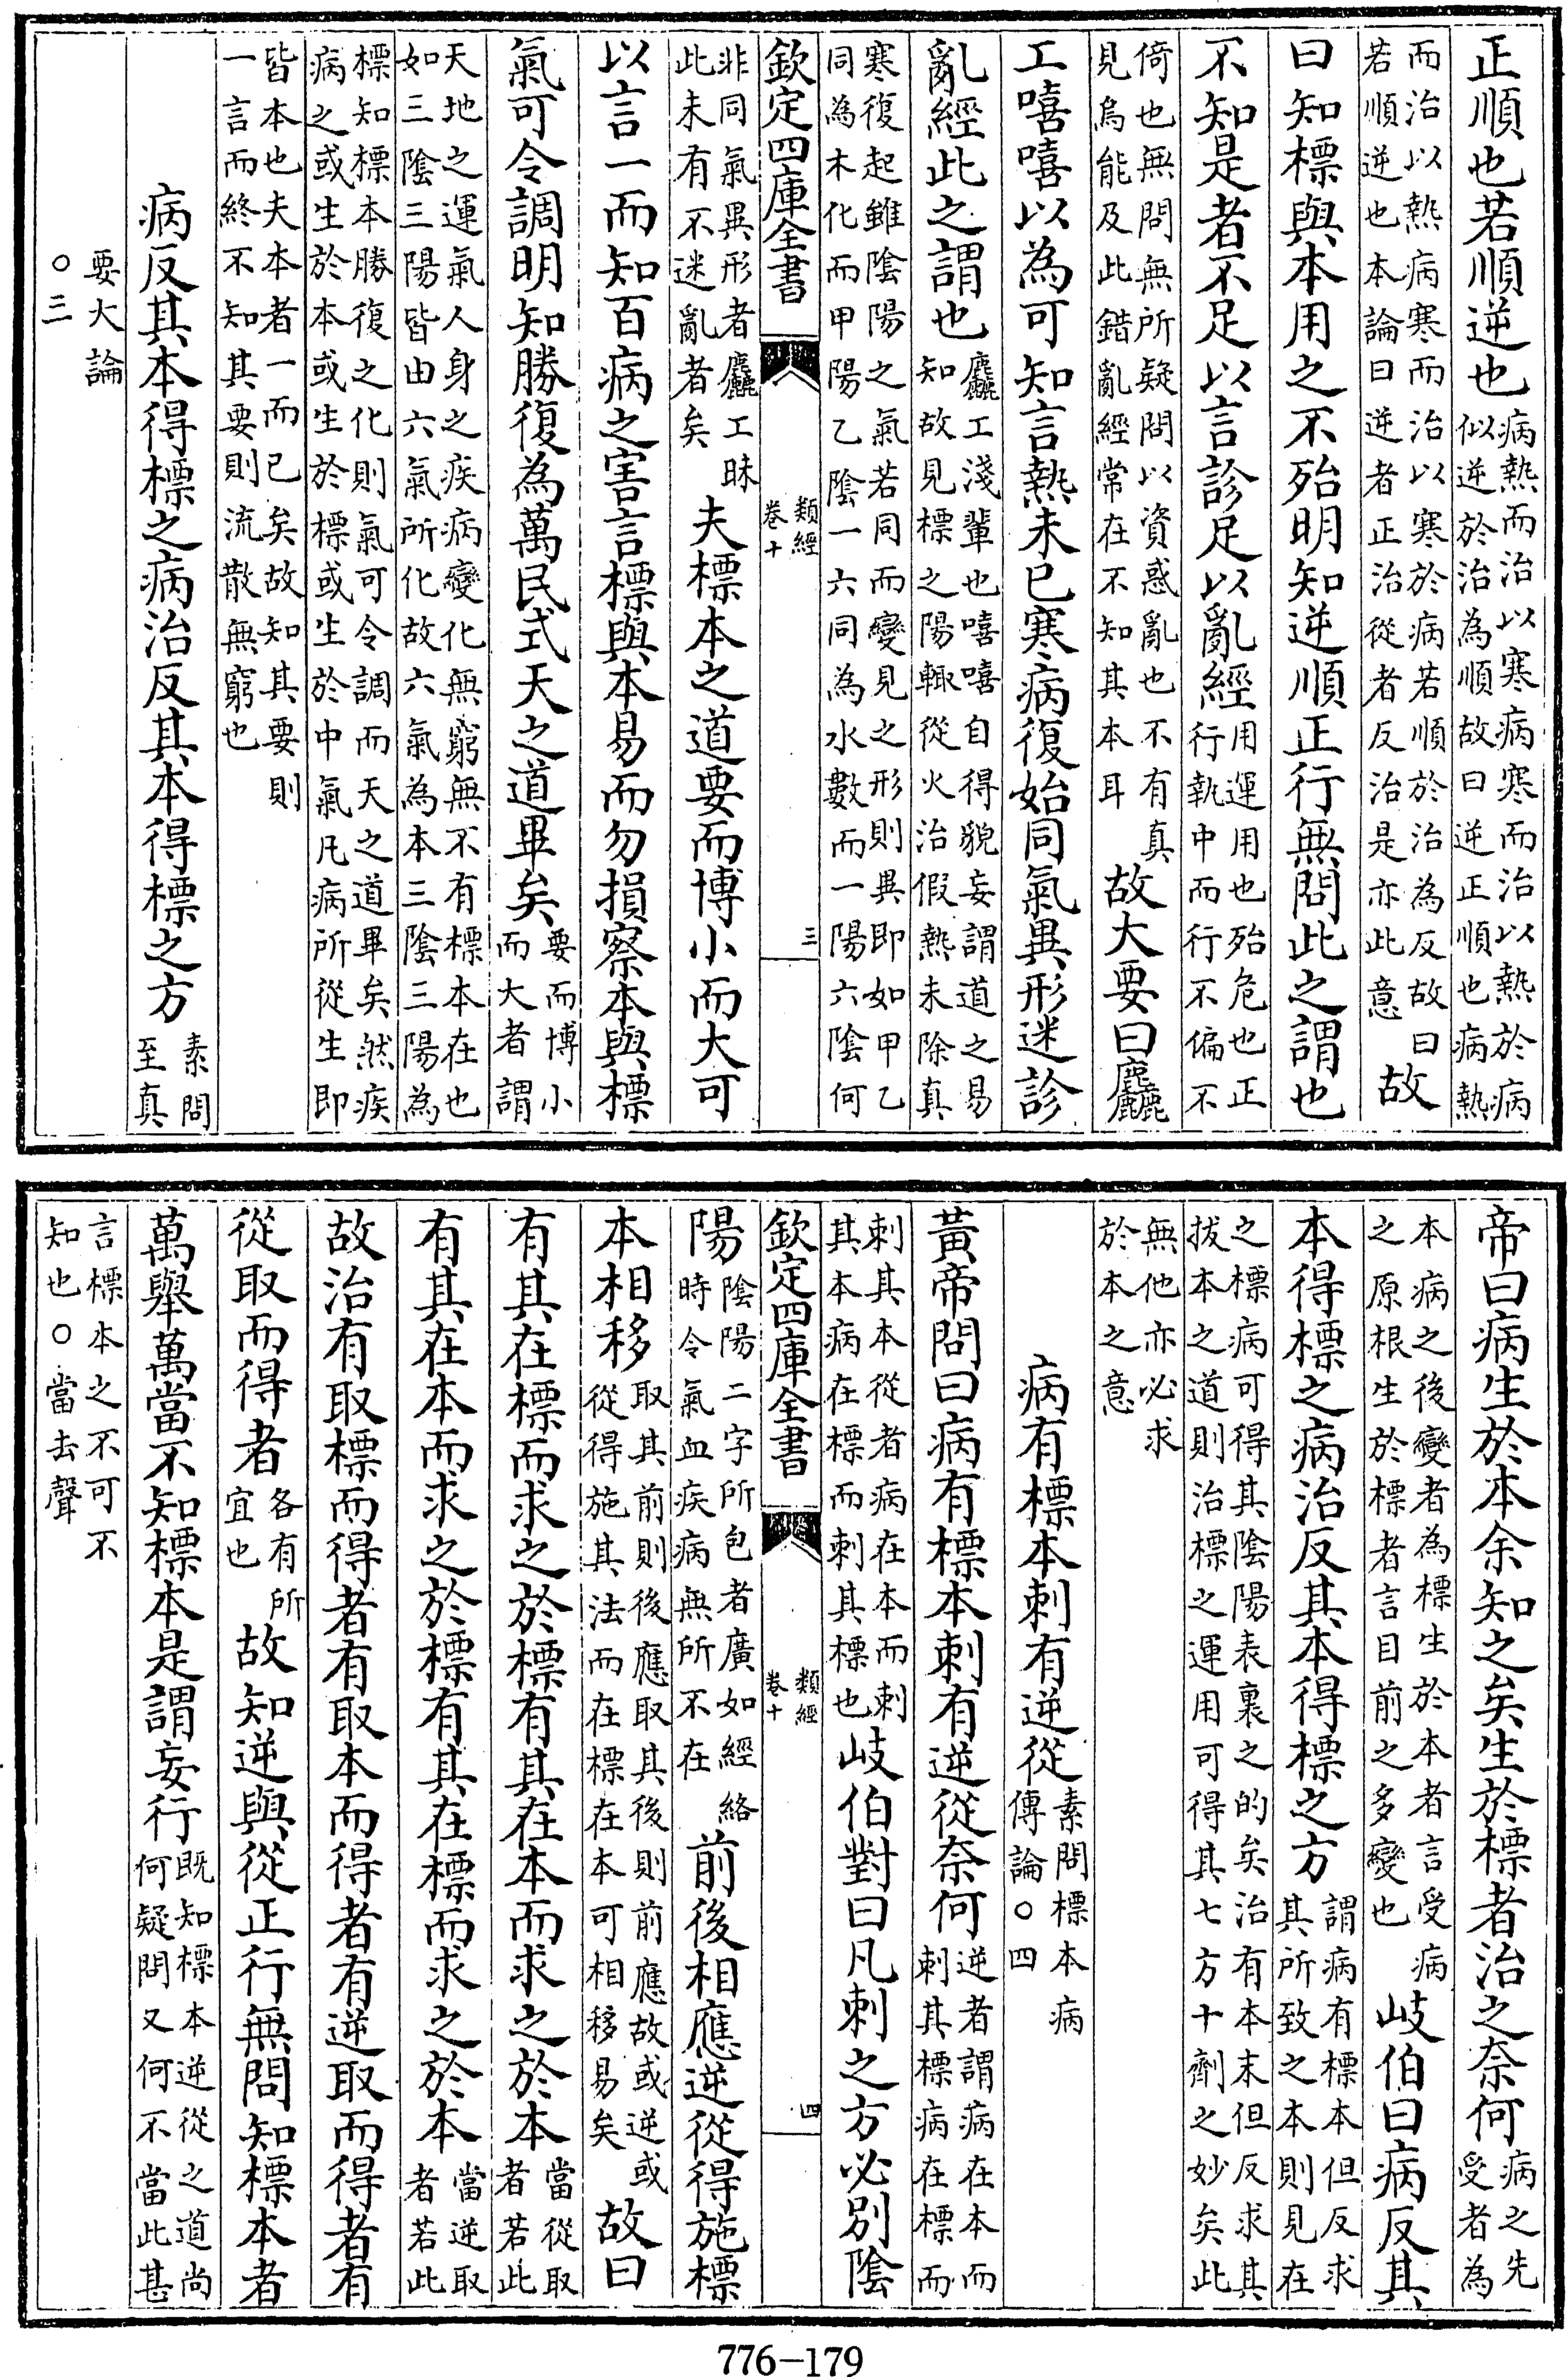 正順也若順逆也病熱而治以寒病寒而治以熱於病似逆於治為順故曰逆正順也病熱
而治以熱病寒而治以寒於病若順於治為反故曰若順逆也本論曰逆者正治從者反治是亦此意故
曰知標與本用之不殆明知逆順正行無問此之謂也
不知是者不足以言診足以亂經用運用也殆危也正行執中而行不偏不
倚也無問無所疑問以資惑亂也不有真見烏能及此錯亂經常在不知其本耳故大要曰麤
工嘻嘻以為可知言熱未已寒病復始同氣異形迷診
亂經此之謂也麤工淺輩也嘻嘻自得貌妄謂道之易知故見標之陽輒從火治假熱未除真
寒復起雖陰陽之氣若同而變見之形則異即如甲乙同為木化而甲陽乙陰一六同為水數而一陽六陰何
欽定四庫全書 類經 卷十 三
非同氣異形者麤工昧此未有不迷亂者矣夫標本之道要而博小而大可
以言一而知百病之害言標與本易而勿損察本與標
氣可令調明知勝復為萬民式天之道畢矣要而博小而大者謂
天地之運氣人身之疾病變化無窮無不有標本在也如三陰三陽皆由六氣所化故六氣為本三陰三陽為
標知標本勝復之化則氣可令調而天之道畢矣然疾病之或生於本或生於標或生於中氣凡病所從生即
皆本也夫本者一而已矣故知其要則一言而終不知其要則流散無窮也
病反其本得標之病治反其本得標之方素問至真
要大論○三
帝曰病生於本余知之矣生於標者治之奈何病之先受者為
本病之後變者為標生於本者言受病之原根生於標者言目前之多變也岐伯曰病反其
本得標之病治反其本得標之方謂病有標本但反求其所致之本則見在
之標病可得其陰陽表裏之的矣治有本末但反求其拔本之道則治標之運用可得其七方十劑之妙矣此
無他亦必求於本之意
病有標本刺有逆從素問標本病傳論○四
黃帝問曰病有標本刺有逆從奈何逆者謂病在本而刺其標病在標而
刺其本從者病在本而刺其本病在標而刺其標也岐伯對曰凡刺之方必別陰
欽定四庫全書 類經 卷十 四
陽陰陽二字所包者廣如經絡時令氣血疾病無所不在前後相應逆從得施標
本相移取其前則後應取其後則前應故或逆或從得施其法而在標在本可相移易矣故曰
有其在標而求之於標有其在本而求之於本當從取者若此
有其在本而求之於標有其在標而求之於本當逆取者若此
故治有取標而得者有取本而得者有逆取而得者有
從取而得者各有所宜也故知逆與從正行無問知標本者
萬舉萬當不知標本是謂妄行既知標本逆從之道尚何疑問又何不當此甚
言標本之不可不知也○當去聲
776-179